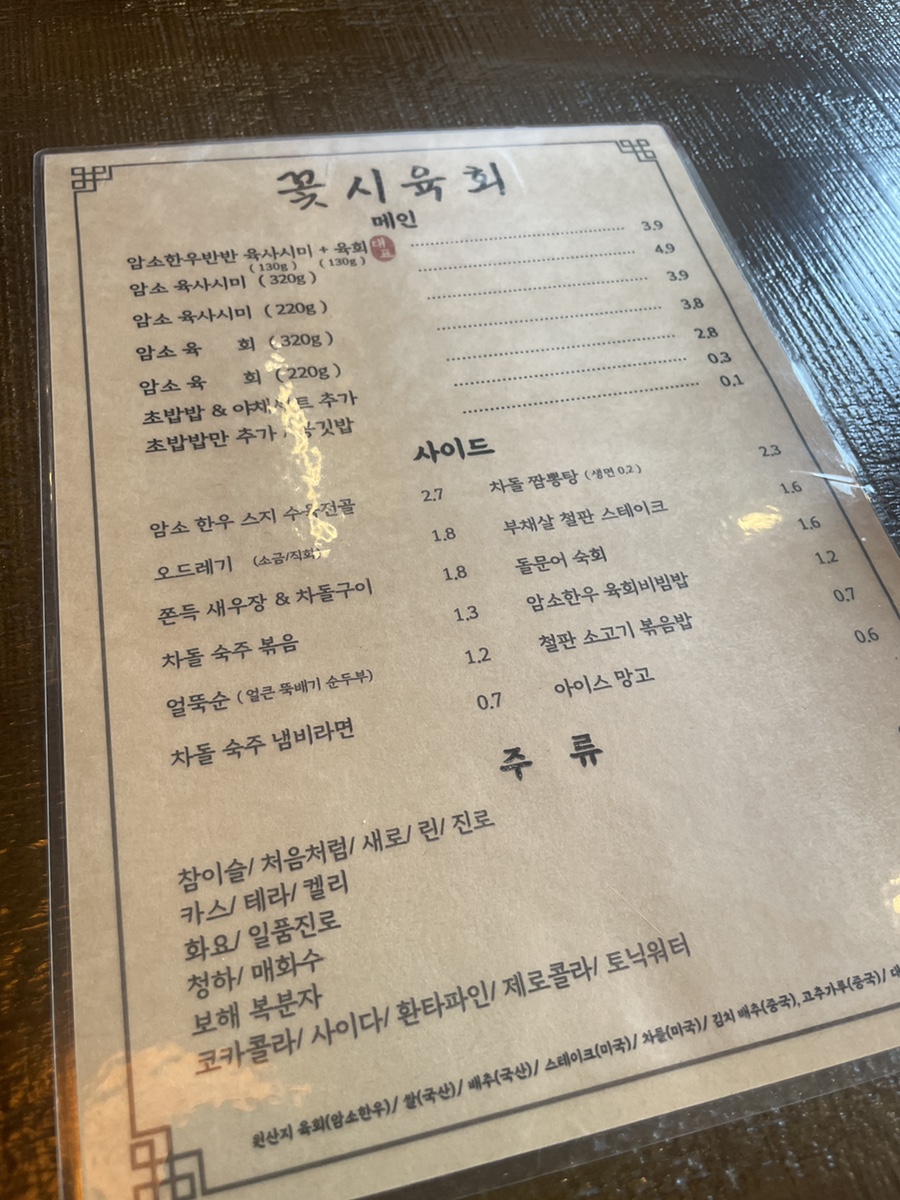 꽃 시 육 회
메인
암소한우반반 육사시미 + 육회 대표 3.9
(130g) (130g)
암소 육사시미 (320g) 4.9
암소 육사시미 (220g) 3.9
암소 육 회 (320g) 3.8
암소 육 회 (220g) 2.8
초밥밥 & 야채세트 추가 0.3
초밥밥만 추가 / 공깃밥 0.1
사이드
암소 한우 스지 수육전골 2.7
차돌 짬뽕탕 (생면 0.2) 2.3
오드레기 (소금/직화) 1.8
부채살 철판 스테이크 1.6
쫀득 새우장 & 차돌구이 1.8
돌문어 숙회 1.6
차돌 숙주 볶음 1.3
암소한우 육회비빔밥 1.2
얼뚝순 (얼큰 뚝배기 순두부) 1.2
철판 소고기 볶음밥 0.7
차돌 숙주 냄비라면 0.7
아이스 망고 0.6
주 류
참이슬/ 처음처럼/ 새로/ 린/ 진로
카스/ 테라/ 켈리
화요/ 일품진로
청하/ 매화수
보해 복분자
코카콜라/ 사이다/ 환타파인/ 제로콜라/ 토닉워터
원산지 육회(암소한우)/ 쌀(국산)/ 배추(국산)/ 스테이크(미국)/ 차돌(미국)/ 김치 배추(중국), 고추가루(중국)/